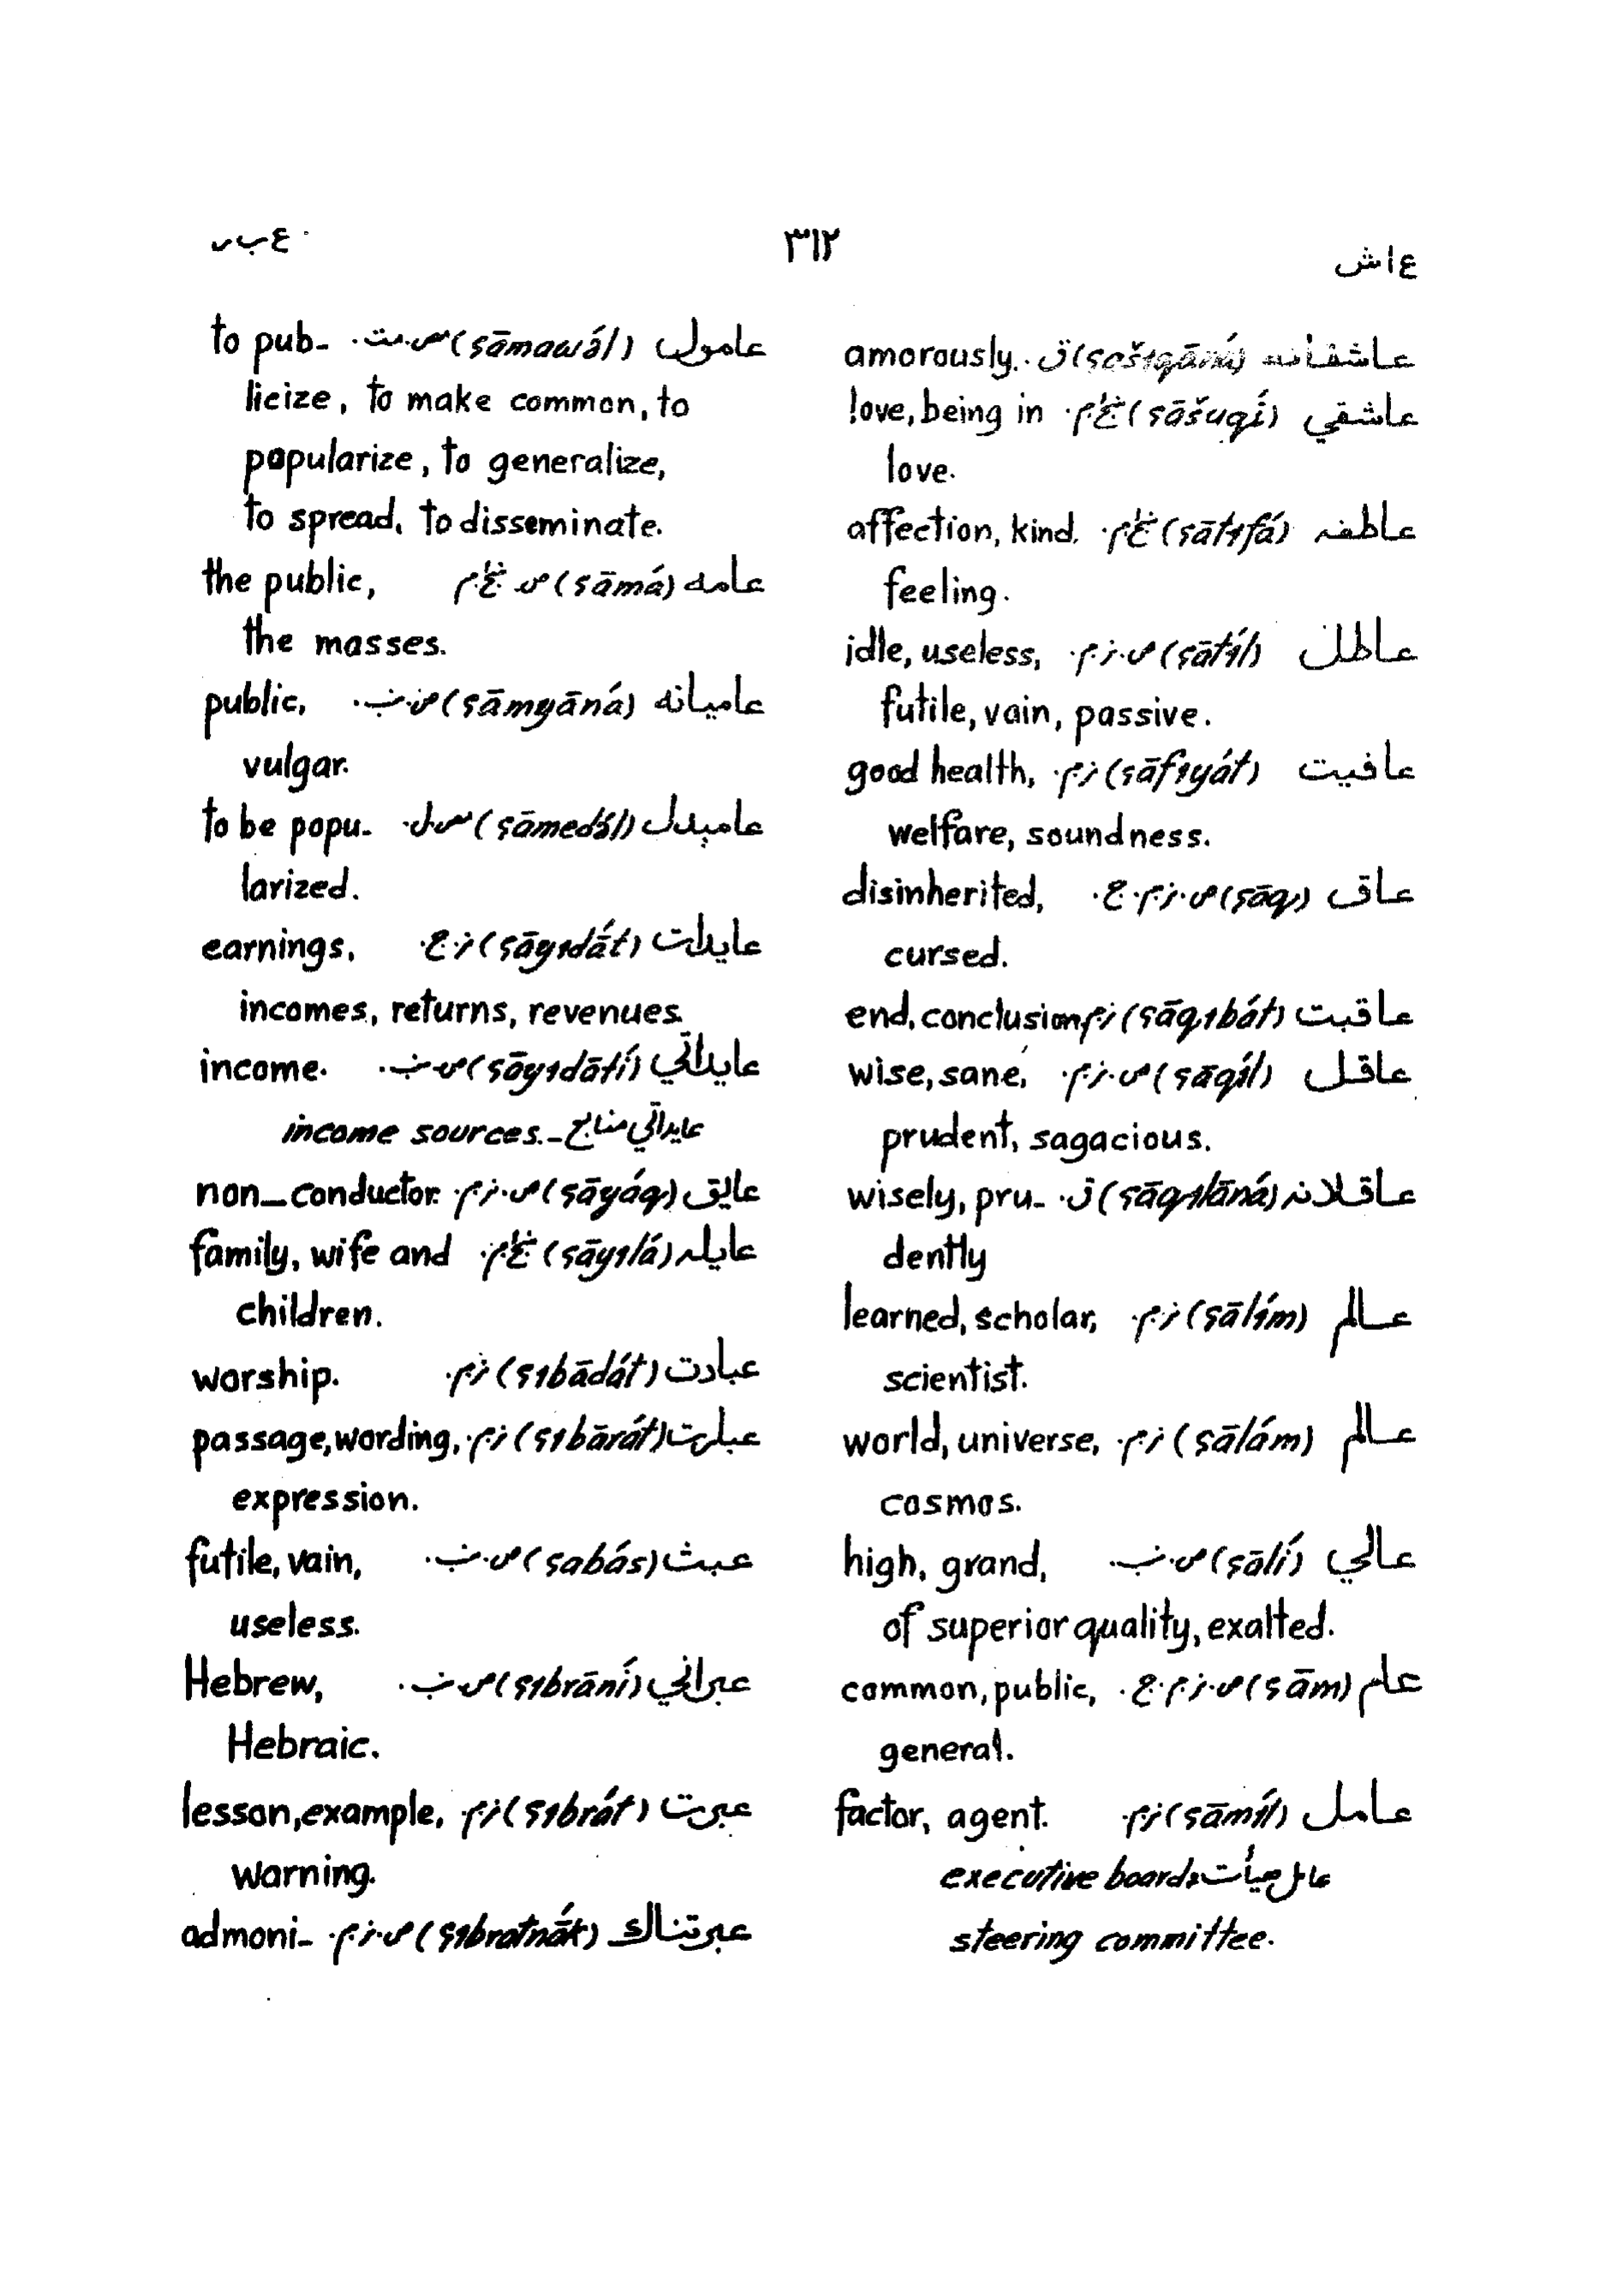 ع اش
٣١٢
ع ب ر
عاشقانه (şāšıqāná) ق. amorously.
عاشقي (şāšuqí) ځ م. love, being in
love.
عاطفه (şātıfá) ځ م. affection, kind
feeling.
عاطل (şātíl) ص. ز م. idle, useless,
futile, vain, passive.
عافيت (şāfıyát) ز م. good health,
welfare, soundness.
عاق (şāq) ص. ز م. ج. disinherited,
cursed.
عاقبت (şāqıbát) ز م end, conclusion
عاقل (şāqíl) ص. ز م. wise, sane,
prudent, sagacious.
عاقلانه (şāqılāná) ق. wisely, pru-
dently
عالم (şālím) ز م. learned, scholar,
scientist.
عالم (şālám) ز م. world, universe,
cosmos.
عالي (şālí) ص. ب. high, grand,
of superior quality, exalted.
عام (şām) ص. ز م. ج. common, public,
general.
عامل (şāmíl) ز م. factor, agent.
عامل هيأت executive board,
steering committee.
عامول (şāmawə́l) ص. مت. to pub-
licize, to make common, to
popularize, to generalize,
to spread, to disseminate.
عامه (şāmá) ص ځ م the public,
the masses.
عاميانه (şāmyāná) ص. ب. public,
vulgar.
عاميدل (şāmedə́l) ص. ل. to be popu-
larized.
عايدات (şāyıdā́t) ز. ج. earnings,
incomes, returns, revenues.
عايداتي (şāyıdātí) ص. ب. income.
عايداتي منابع - income sources.
عايق (şāyáq) ص. ز م. non-conductor.
عايله (şāyılá) ځ م. family, wife and
children.
عبادت (şıbādát) ز م. worship.
عبارت (şıbārát) ز م. passage, wording,
expression.
عبث (şabás) ص. ب. futile, vain,
useless.
عبراني (şıbrāní) ص ب. Hebrew,
Hebraic.
عبرت (şıbrát) ز م lesson, example,
warning.
عبرتناک (şıbratnā́k) ص. ز م. admoni-